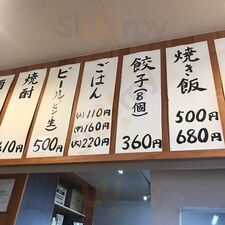 焼き飯
500円
680円
餃子(8個)
360円
ごはん
(小)110円
(中)160円
(大)220円
ビール(ビン生)
500円
焼酎
酒
410円